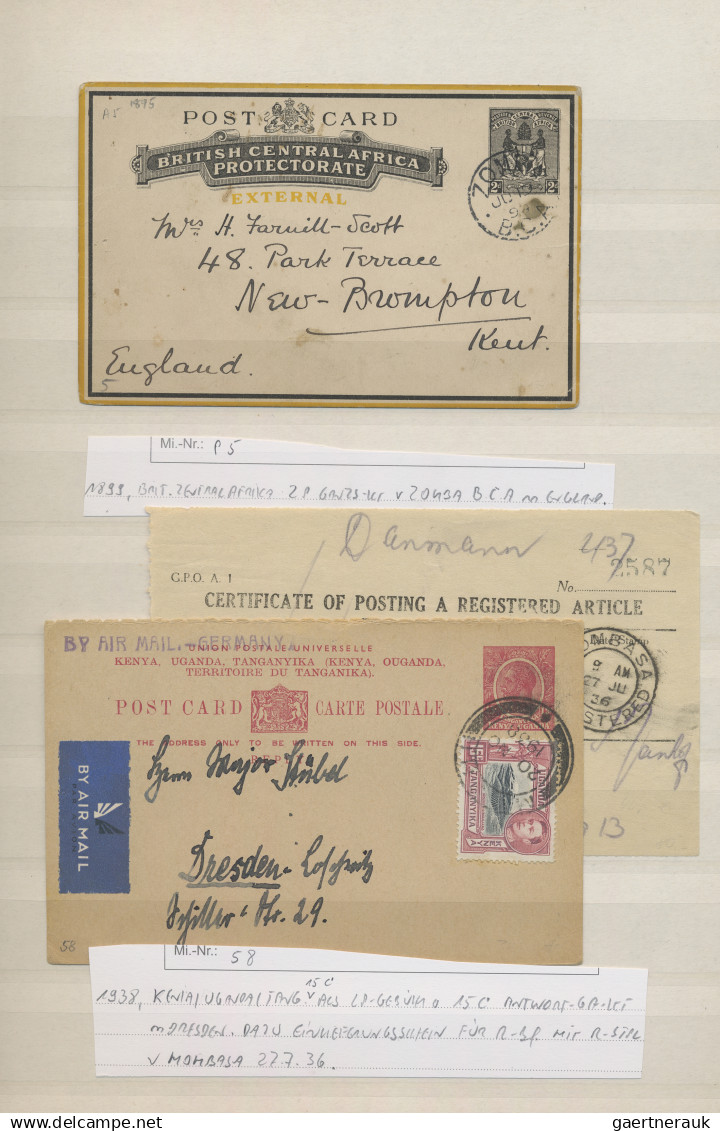 A5 1895
POST CARD
BRITISH CENTRAL AFRICA
PROTECTORATE
EXTERNAL
2d 2d
ZOMBA
B.C.A.
Mrs H. Farnill-Scott
48. Park Terrace
New-Brompton
Kent.
England.
5
Mi.-Nr.: P5
1899, BRIT. ZENTRALAFRIKA 2P GANZS-KT v ZOMBA B C A n ENGLAND.
Danmann 437
G.P.O. A. 1
No. 2587
CERTIFICATE OF POSTING A REGISTERED ARTICLE
Date Stamp
MOMBASA
8 AM
27 JU
36
REGISTERED
13
BY AIR MAIL.-GERMANY
UNION POSTALE UNIVERSELLE
KENYA, UGANDA, TANGANYIKA (KENYA, OUGANDA,
TERRITOIRE DU TANGANIKA).
POST CARD CARTE POSTALE.
THE ADDRESS ONLY TO BE WRITTEN ON THIS SIDE.
REPLY
KENYA UGANDA
TANGANYIKA
UGANDA
KENYA
BY AIR MAIL
Herrn Major Stübel
Dresden-Loschwitz
Schiller-Str. 29.
58
Mi.-Nr.: 58
15 C
1938, KENIA/UGANDA/TANG ALS LP-GEBÜHR a 15C ANTWORT-GA-KT
n DRESDEN. DAZU EINLIEFERUNGSSCHEIN FÜR R-Bf. MIT R-STPL
v MOMBASA 27.7.36.
gaertnerauk